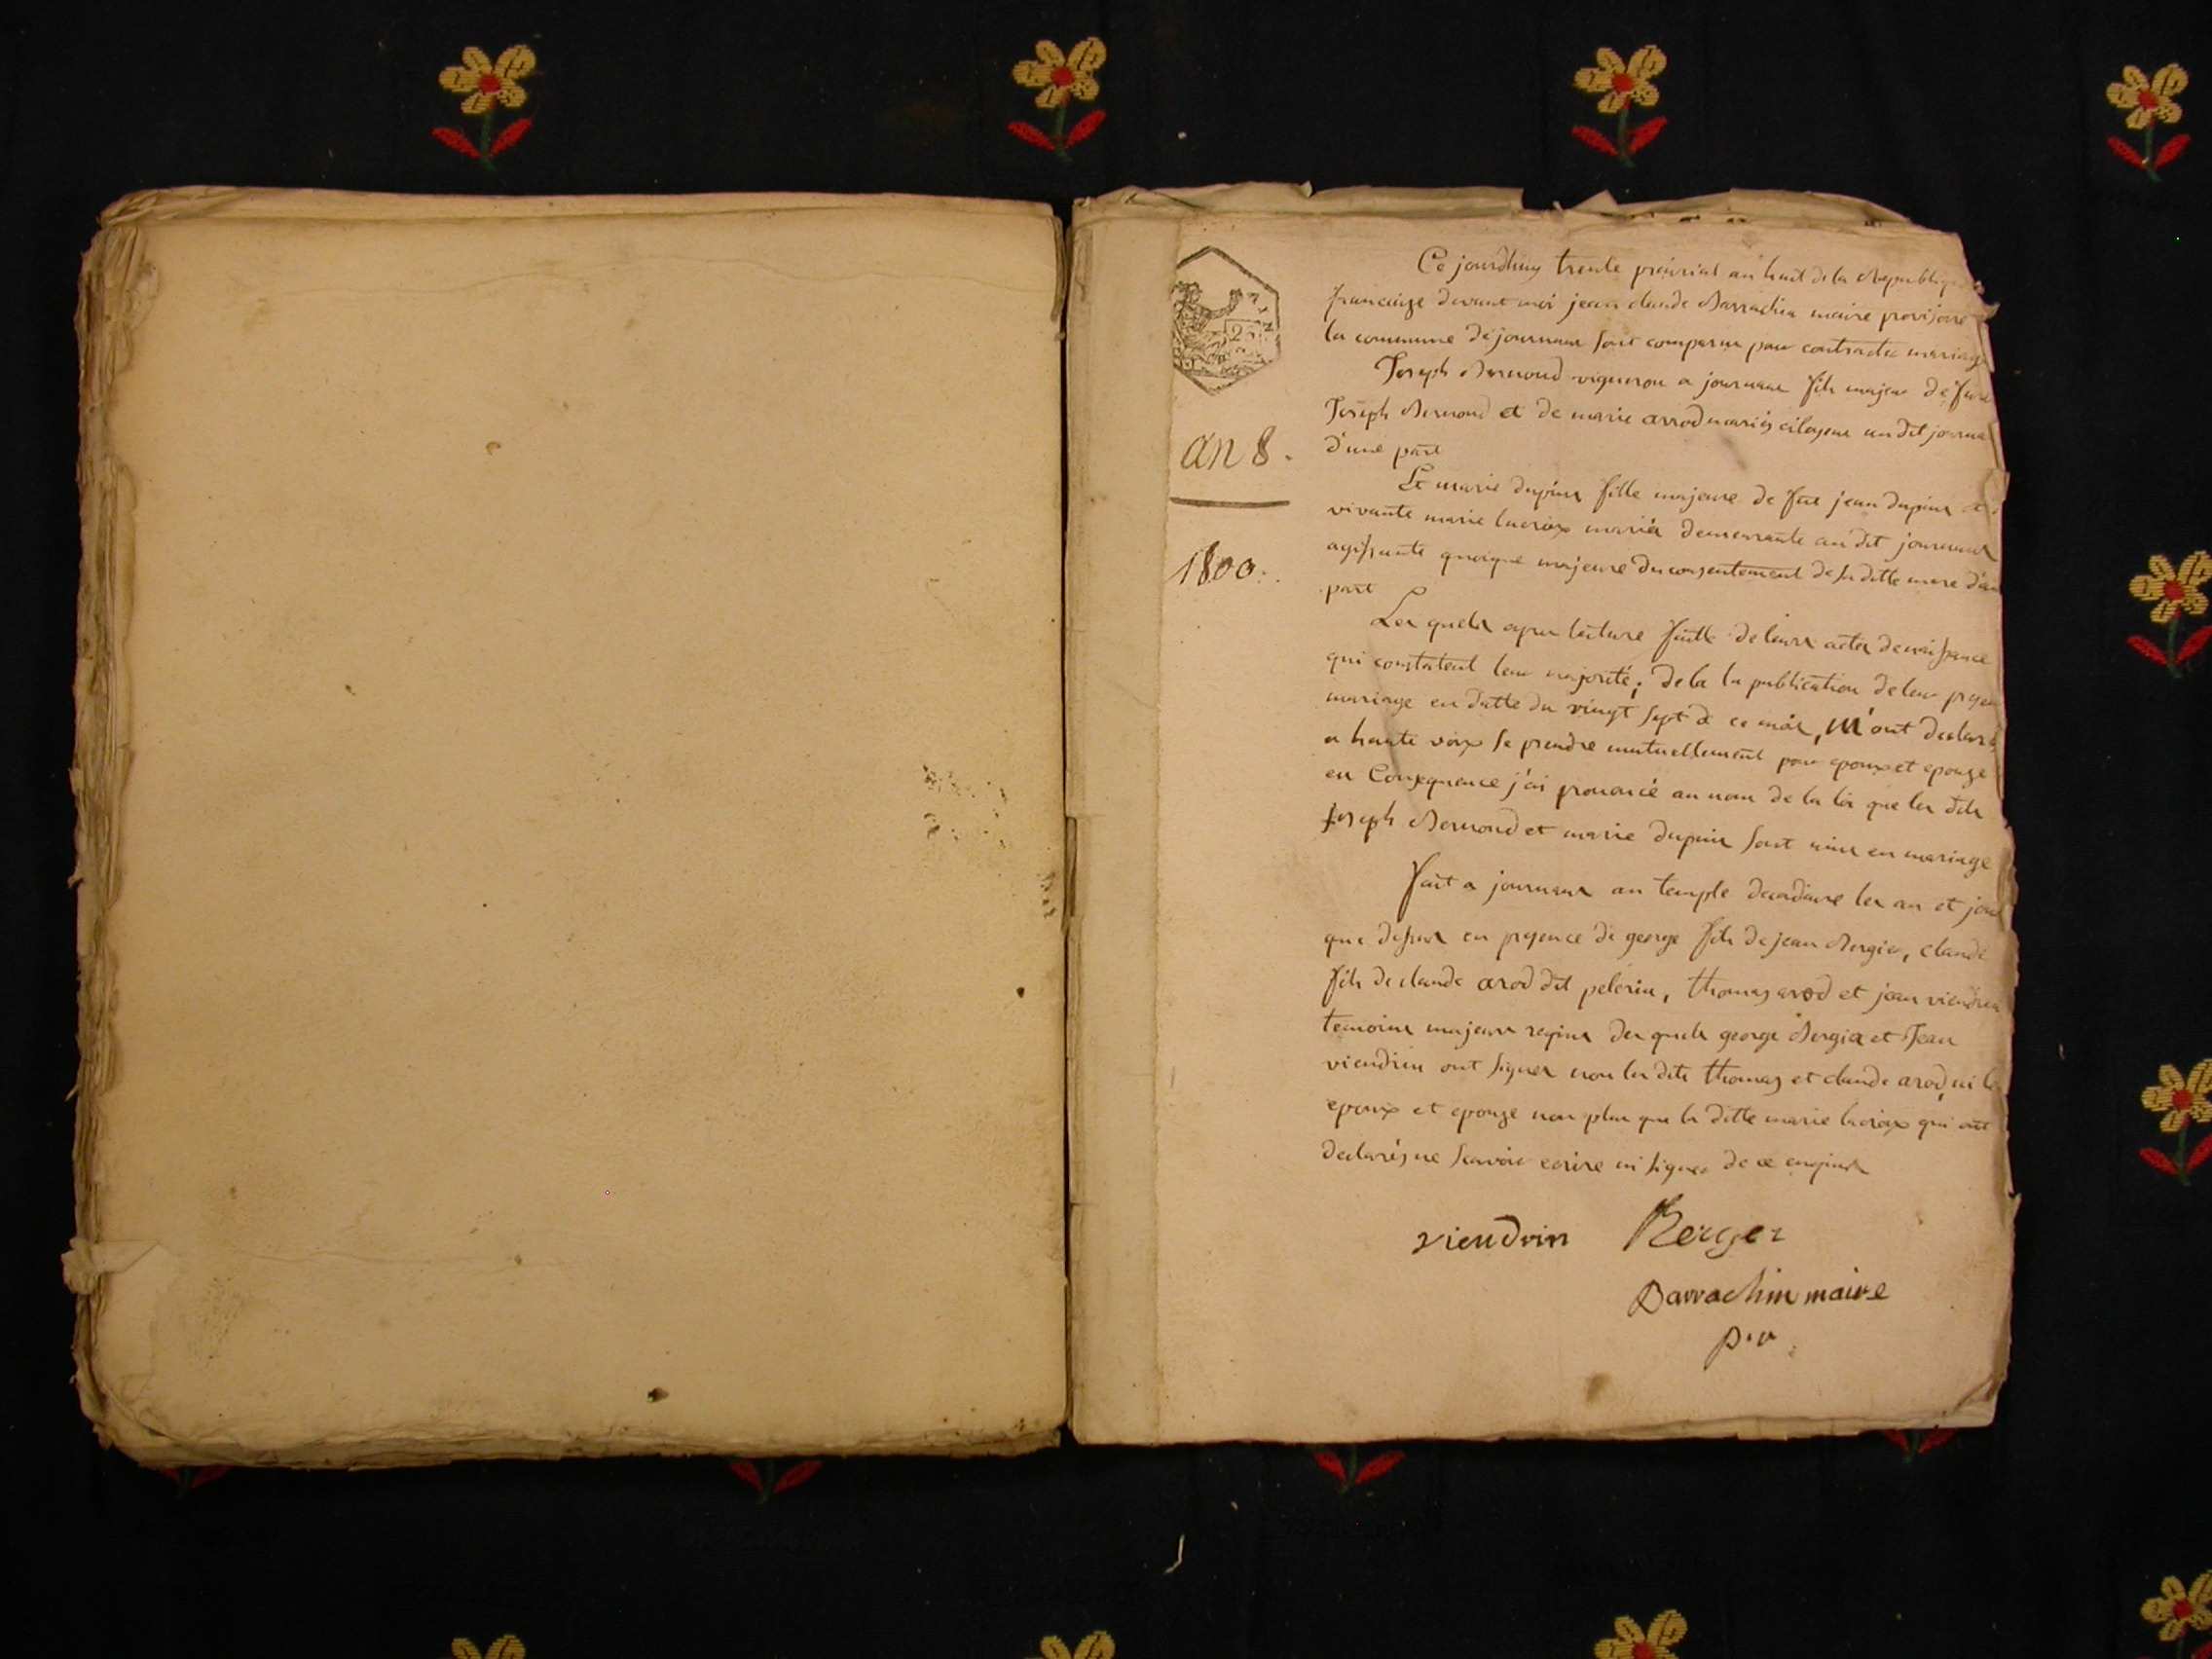 25
an 8.
1800.
Ce jourdhuy trente prairial an huit de la Republique
francaise devant moi jean claude Barrachin maire provisoire
la commune de journans sont comparus pour contracter mariage
Joseph Bernoud vigneron a journans fils majeur de feu
Joseph Bernoud et de marie arrod mariés citoyens un dit journans
d'une part
Et marie dupuis fille majeure de feu jean dupuis et
vivante marie lacroix mariés demeurante au dit journans
agissante quoique majeure du consentement de sa ditte mere d'au
part
Les quels apres lecture faitte de leurs actes de naissance
qui constatent leur majorité; de la la publication de leur presen
mariage en datte du vingt sept de ce mois, m'ont declaré
a haute voix se prendre mutuellement pour epoux et epouze
en Consequence j'ai prononcé au nom de la loi que les dits
joseph Bernoud et marie dupuis sont unis en mariage
fait a journans au temple decadaire les an et jour
que dessus en presence de george fils de jean Bergier, claude
fils de claude arod dit pelerin, thomas arod et jean viendrin
temoins majeurs requis des quels george Bergier et Jean
viendrin ont signes non les dits thomas et claude arod, ni les
epoux et epouze non plus que la ditte marie lacroix qui ont
declarés ne scavoir ecrire ni signer de ce enquis
viendrin Berger
Barrachin maire
p.v.